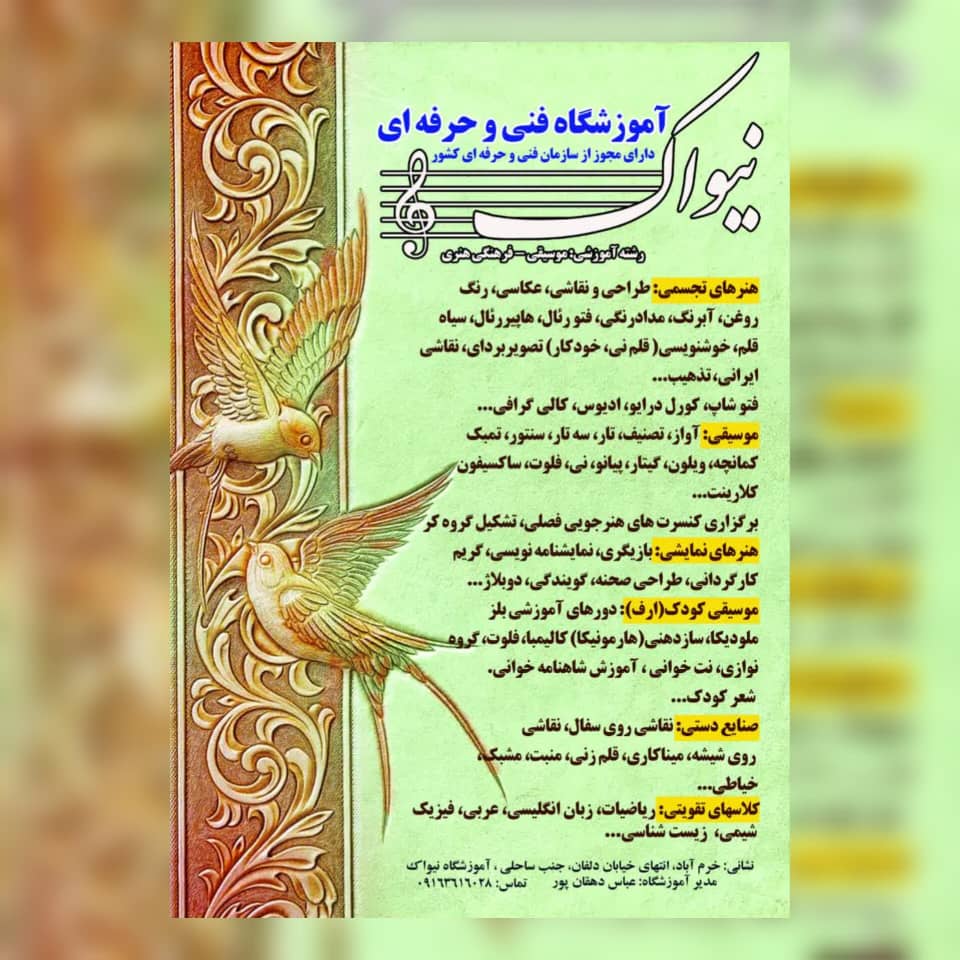 آموزشگاه فنی و حرفه ای
دارای مجوز از سازمان فنی و حرفه ای کشور
نیواک
رشته آموزشی: موسیقی - فرهنگی هنری
هنرهای تجسمی: طراحی و نقاشی، عکاسی، رنگ
روغن، آبرنگ، مدادرنگی، فتو رئال، هایپررئال، سیاه
قلم، خوشنویسی( قلم نی، خودکار) تصویربردای، نقاشی
ایرانی، تذهیب...
فتو شاپ، کورل درایو، ادیوس، کالی گرافی...
موسیقی: آواز، تصنیف، تار، سه تار، سنتور، تمبک
کمانچه، ویلون، گیتار، پیانو، نی، فلوت، ساکسیفون
کلارینت...
برگزاری کنسرت های هنرجویی فصلی، تشکیل گروه کر
هنرهای نمایشی: بازیگری، نمایشنامه نویسی، گریم
کارگردانی، طراحی صحنه، گویندگی، دوبلاژ...
موسیقی کودک(ارف): دورهای آموزشی بلز
ملودیکا، سازدهنی(هارمونیکا) کالیمبا، فلوت، گروه
نوازی، نت خوانی ، آموزش شاهنامه خوانی.
شعر کودک...
صنایع دستی: نقاشی روی سفال، نقاشی
روی شیشه، میناکاری، قلم زنی، منبت، مشبک،
خیاطی...
کلاسهای تقویتی: ریاضیات، زبان انگلیسی، عربی، فیزیک
شیمی، زیست شناسی...
نشانی: خرم آباد، انتهای خیابان دلفان، جنب ساحلی ، آموزشگاه نیواک
مدیر آموزشگاه: عباس دهقان پور تماس: ۰۹۱۶۳۶۱۶۰۲۸